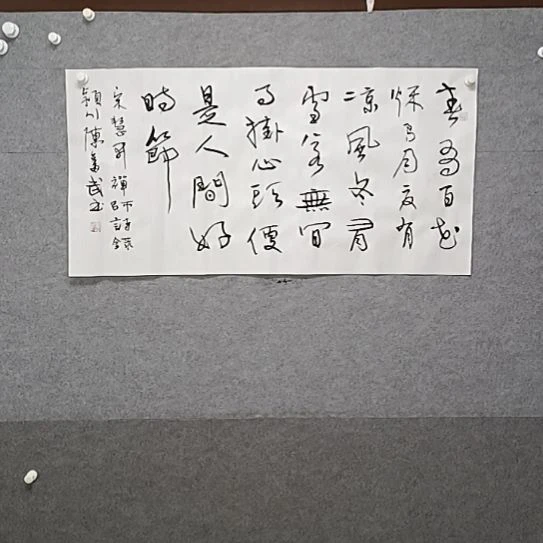 春有百花
秋有月夏有
涼風冬有
雪若無閒
事掛心頭便
是人間好
時節
宋慧開禪師詩錄
潁川陳武書